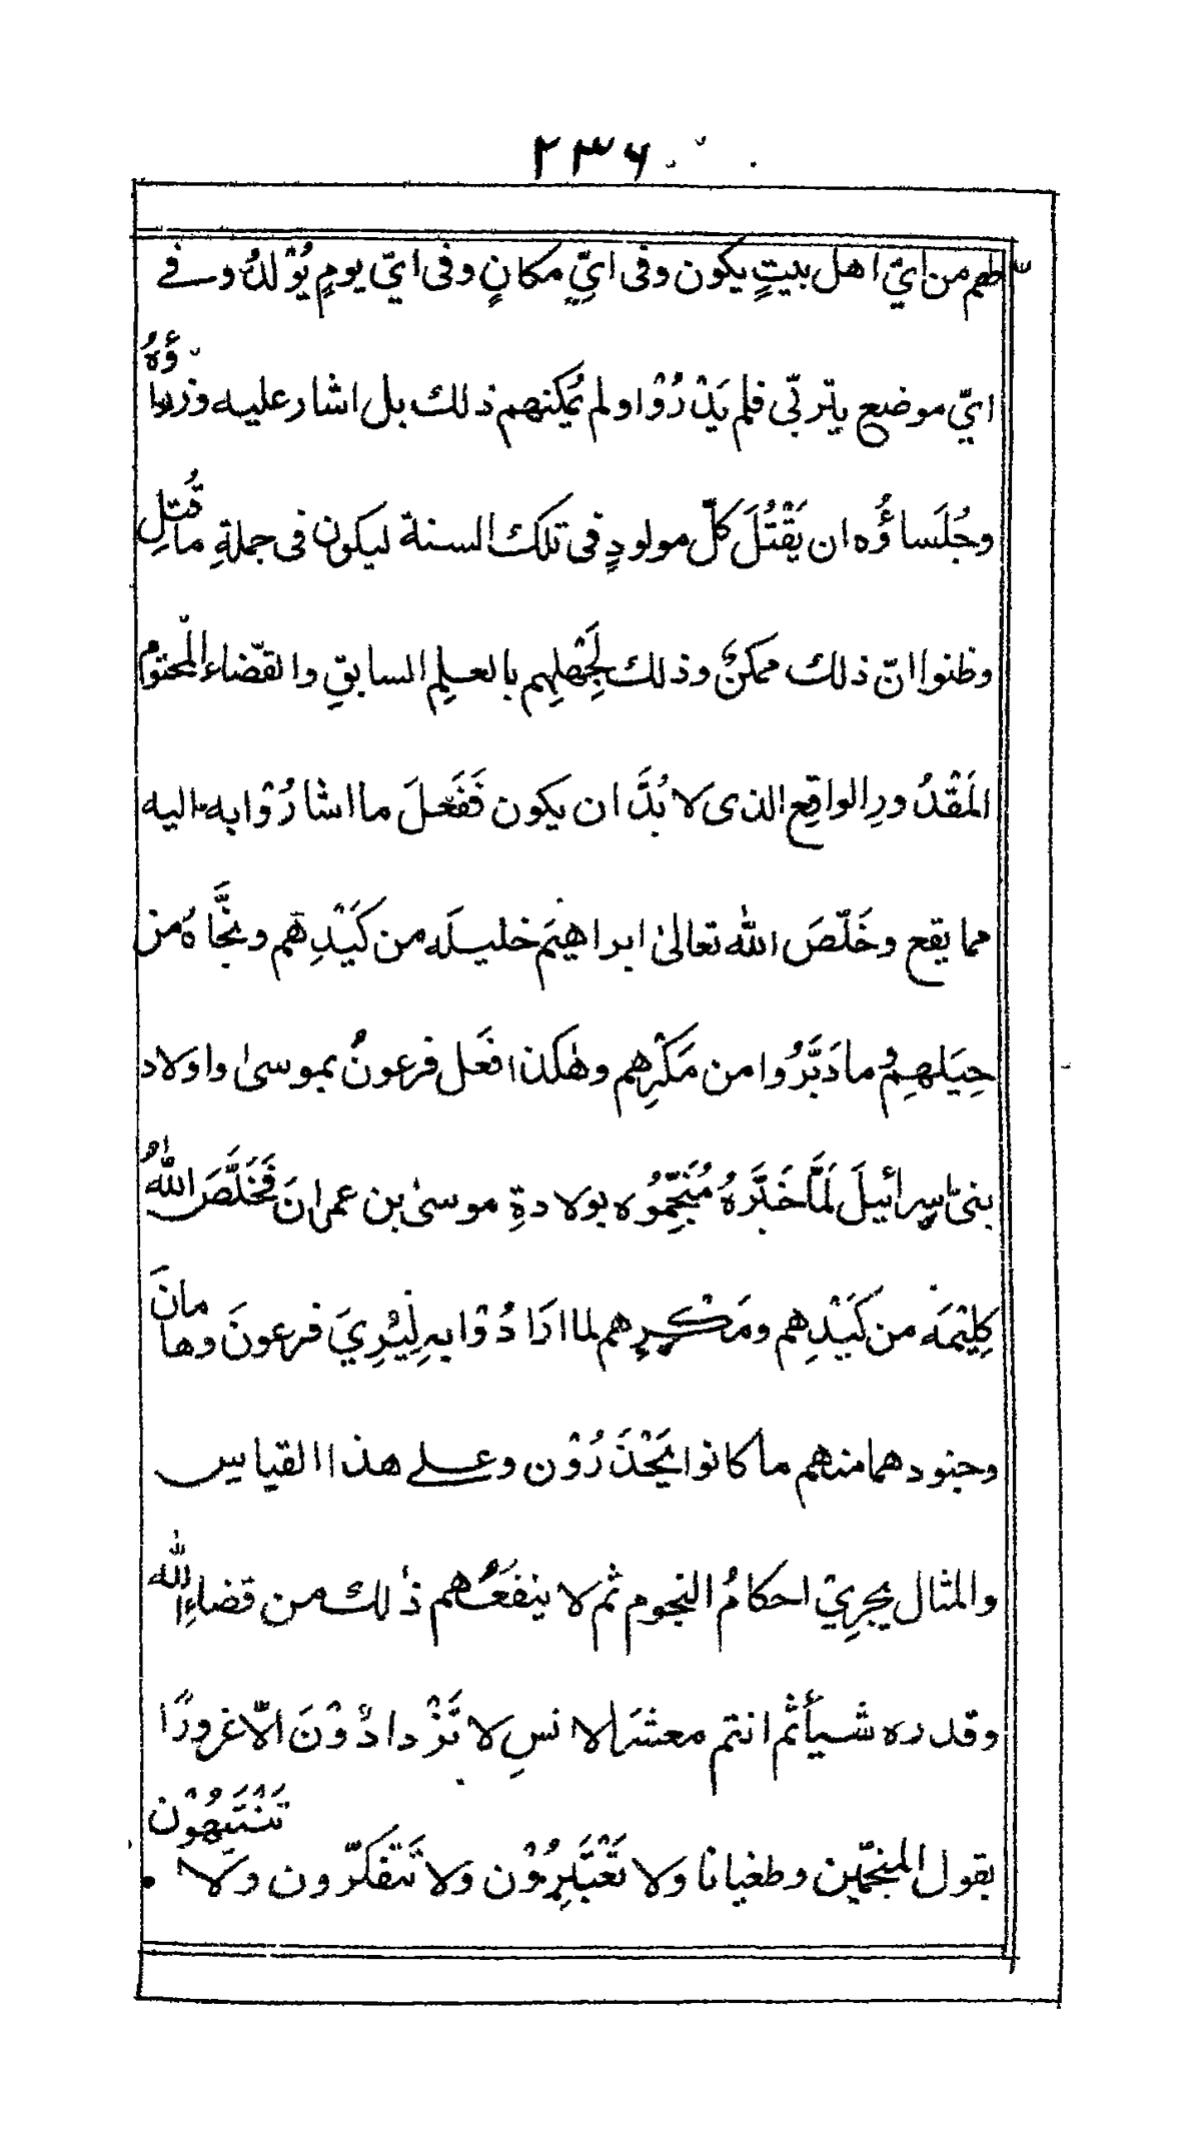 ٢٣٦
طهم من ايّ اهل بيتٍ يكون وفى ايِّ مكانٍ وفى ايّ يومٍ يُوْلدُ وفے
ايّ موضع يتربّى فلم يَدْرُوْا ولم يُمكنهم ذلك بل اشار عليه وزراؤُهُ
وجُلَساؤُه ان يَقْتُلَ كلّ مولودٍ فى تلك السنة ليكون فى جملةِ ما قُتِلِ
وظنوا انّ ذلك ممكنٌ وذلك لِجَهْلِهِم بالعلمِ السابقِ والقضاء المحتوم
المَقْدُورِ الواقِعِ الذى لا بُدَّ ان يكون فَفَعَلَ ما اشارُوْا به اليه
مما يقع وخَلّصَ اللّٰه تعالىٰ ابراهيمَ خليلَه من كَيْدِهم ونجَّاهُ من
حِيَلهِمْ وما دَبَّرُوا من مَكْرِهِم وهٰكذا فَعَل فرعونُ بموسىٰ واولاد
بنى اسرائيلَ لَمَّا خَبَّرَهُ مُنَجِّمُوه بولادةِ موسىٰ بن عمرانَ فَخَلَّصَ اللّٰهُ
كلِيْمَه من كَيْدِهم ومَكْرِهم لما ارَادُوْا بِهِ لِيُرِيَ فرعونَ وهامانَ
وجنودهما منهم ما كانوا يَحْذَرُوْن وعلے هذا القياس
والمثال يجرِيْ احكامُ النجوم ثم لا ينفَعُهم ذٰلك من قضاءِ اللّٰه
وقدره شيأً ثم انتم معشَرَ الانسِ لا تَزْدادُوْنَ الّا غرورًا
بقول المنجمّين وطغيانا ولا تَعْتَبِرُوْن ولا تَتَفكرّون ولا تَنْتَبِهُوْن